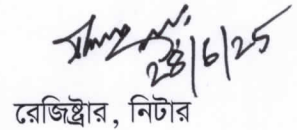 28/6/25
রেজিষ্ট্রার, নিটার